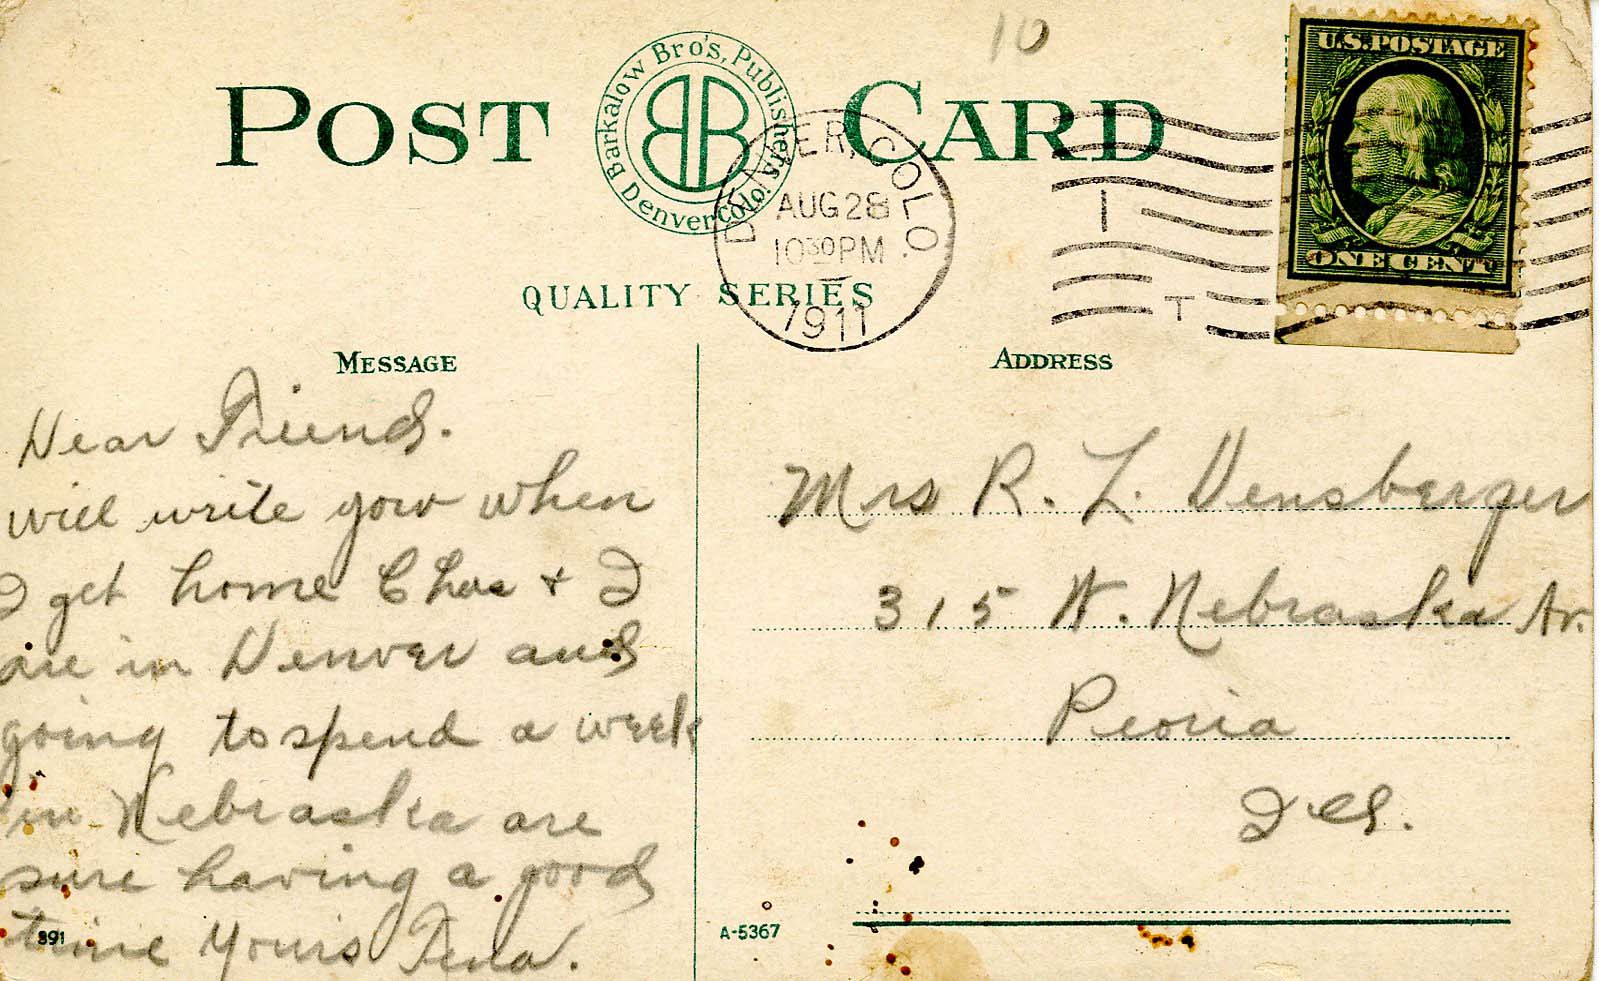 10
U.S. POSTAGE
POST CARD
Barkalow Bro's, Publishers,
Denver Colo.
BB
DENVER, COLO.
AUG 28
10 30 PM
1911
1
T
ONE CENT
QUALITY SERIES
MESSAGE
Dear Friend.
will write you when
I get home Chas + I
are in Denver and
going to spend a week
in Nebraska are
sure having a good
time Yours Tena.
891
ADDRESS
Mrs R. L. Densberger
315 W. Nebraska Av.
Peoria
Ill.
A-5367